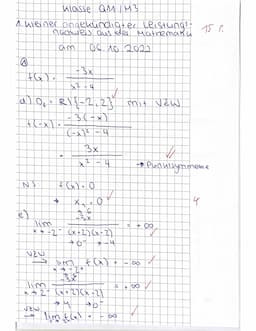 Klasse QM/M3
1. Kleiner angekündigter Leistungs-
nachweis aus der Mathematik
am 06.10.2022
15 P.
f(x) = -3x / x² - 4
a) D_f = R\{-2;2} mit VZW
f(-x) = -3(-x) / (-x)² - 4
= 3x / x² - 4 → Punktsymmetrie
NS f(x) = 0
x₁ = 0
4
e)
lim x→-2 -3x / (x+2)(x-2) = +∞
→0 →-4
VZW → lim x→-2 f(x) = -∞
lim x→2 -3x / (x+2)(x-2) = +∞
→4 →0
VZW → lim f(x) = -∞